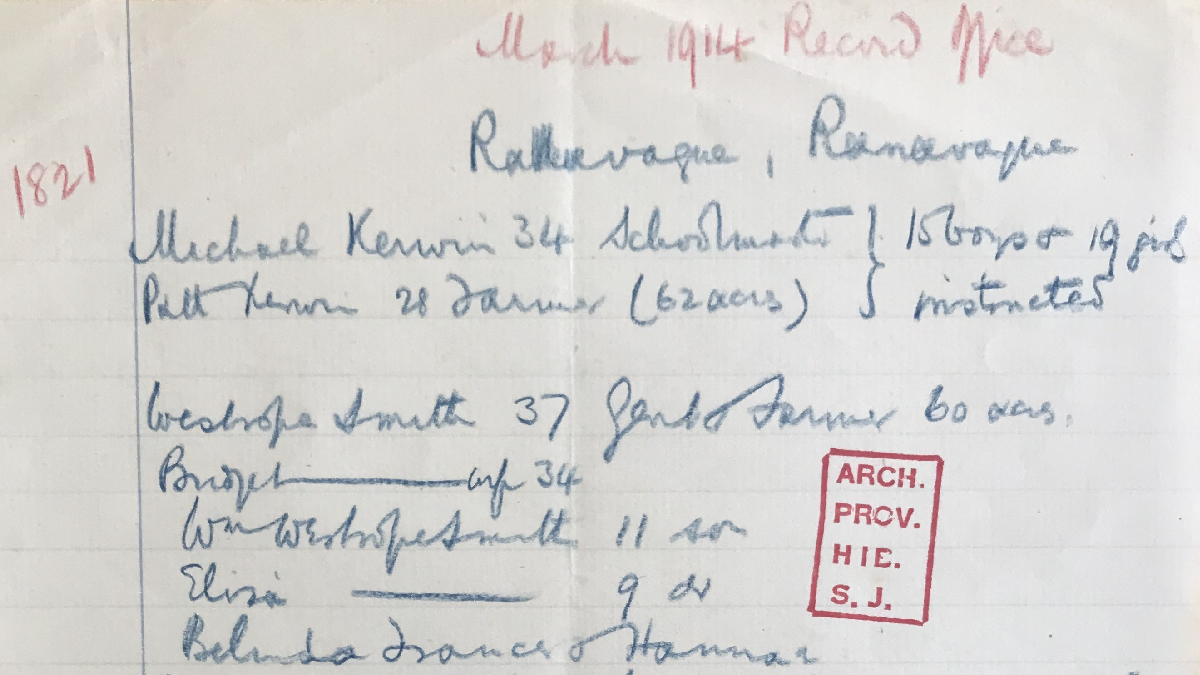 March 1914 Record Office
1821
Rathavaque, Ranavaque
Michael Kerwin 34 Schoolmastr } 15 boys & 19 girls
Patt Kerwin 28 Farmer (62 acrs) } instructed
Westrope Smith 37 Gent & Farmer 60 acrs.
Bridget wife 34
Wm Westrope Smith 11 son
Eliza 9 dr
Belinda Frances & Hannah
ARCH.
PROV.
HIE.
S. J.